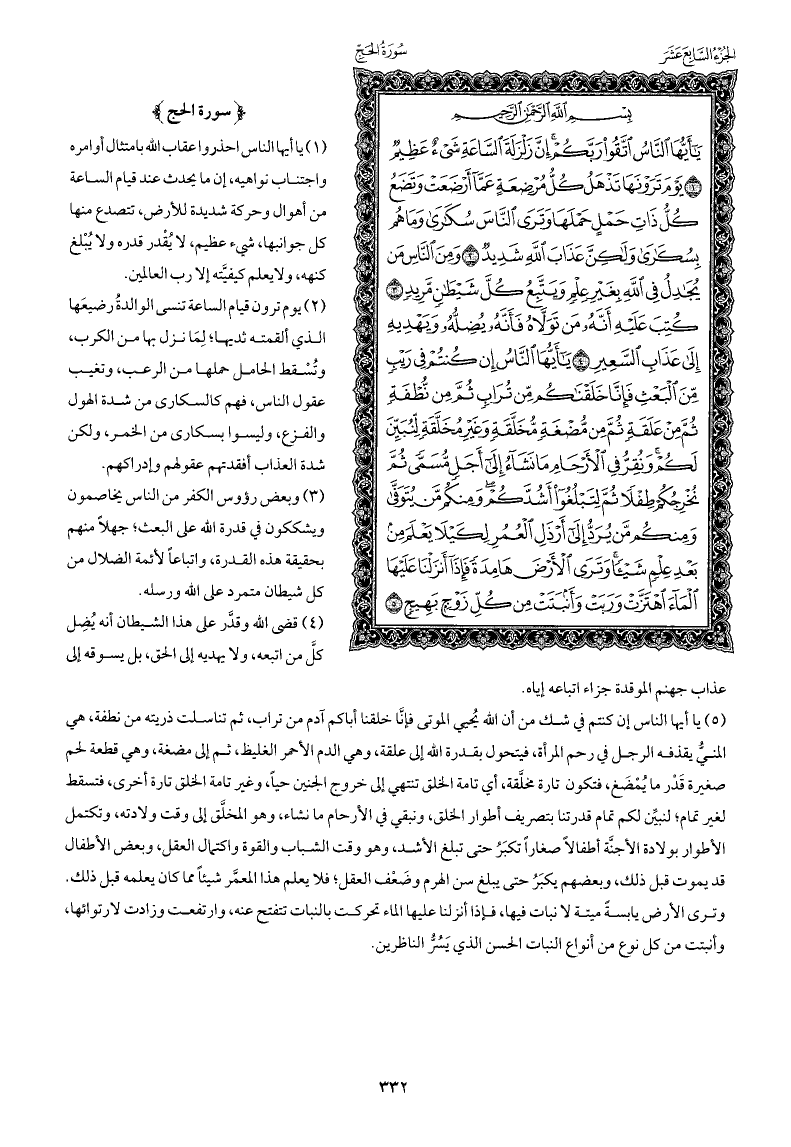 الجزء السابع عشر
سورة الحج
بِسْمِ ٱللَّهِ ٱلرَّحْمَٰنِ ٱلرَّحِيمِ
يَٰٓأَيُّهَا ٱلنَّاسُ ٱتَّقُوا۟ رَبَّكُمْ ۚ إِنَّ زَلْزَلَةَ ٱلسَّاعَةِ شَىْءٌ عَظِيمٌ
﴿١﴾ يَوْمَ تَرَوْنَهَا تَذْهَلُ كُلُّ مُرْضِعَةٍ عَمَّآ أَرْضَعَتْ وَتَضَعُ
كُلُّ ذَاتِ حَمْلٍ حَمْلَهَا وَتَرَى ٱلنَّاسَ سُكَٰرَىٰ وَمَا هُم
بِسُكَٰرَىٰ وَلَٰكِنَّ عَذَابَ ٱللَّهِ شَدِيدٌ ﴿٢﴾ وَمِنَ ٱلنَّاسِ مَن
يُجَٰدِلُ فِى ٱللَّهِ بِغَيْرِ عِلْمٍ وَيَتَّبِعُ كُلَّ شَيْطَٰنٍ مَّرِيدٍ ﴿٣﴾
كُتِبَ عَلَيْهِ أَنَّهُۥ مَن تَوَلَّاهُ فَأَنَّهُۥ يُضِلُّهُۥ وَيَهْدِيهِ
إِلَىٰ عَذَابِ ٱلسَّعِيرِ ﴿٤﴾ يَٰٓأَيُّهَا ٱلنَّاسُ إِن كُنتُمْ فِى رَيْبٍ
مِّنَ ٱلْبَعْثِ فَإِنَّا خَلَقْنَٰكُم مِّن تُرَابٍ ثُمَّ مِن نُّطْفَةٍ
ثُمَّ مِنْ عَلَقَةٍ ثُمَّ مِن مُّضْغَةٍ مُّخَلَّقَةٍ وَغَيْرِ مُخَلَّقَةٍ لِّنُبَيِّنَ
لَكُمْ ۚ وَنُقِرُّ فِى ٱلْأَرْحَامِ مَا نَشَآءُ إِلَىٰٓ أَجَلٍ مُّسَمًّى ثُمَّ
نُخْرِجُكُمْ طِفْلًا ثُمَّ لِتَبْلُغُوٓا۟ أَشُدَّكُمْ ۖ وَمِنكُم مَّن يُتَوَفَّىٰ
وَمِنكُم مَّن يُرَدُّ إِلَىٰٓ أَرْذَلِ ٱلْعُمُرِ لِكَيْلَا يَعْلَمَ مِنۢ
بَعْدِ عِلْمٍ شَيْـًٔا ۚ وَتَرَى ٱلْأَرْضَ هَامِدَةً فَإِذَآ أَنزَلْنَا عَلَيْهَا
ٱلْمَآءَ ٱهْتَزَّتْ وَرَبَتْ وَأَنۢبَتَتْ مِن كُلِّ زَوْجٍۭ بَهِيجٍ ﴿٥﴾
﴿ سورة الحج ﴾
(١) يا أيها الناس احذروا عقاب الله بامتثال أوامره
واجتناب نواهيه، إن ما يحدث عند قيام الساعة
من أهوال وحركة شديدة للأرض، تتصدع منها
كل جوانبها، شيء عظيم، لا يُقْدر قدره ولا يُبْلغ
كنهه، ولا يعلم كيفيَّته إلا رب العالمين.
(٢) يوم ترون قيام الساعة تنسى الوالدةُ رضيعَها
الذي ألقمته ثديها؛ لِمَا نزل بها من الكرب،
وتُسْقط الحامل حملها من الرعب، وتغيب
عقول الناس، فهم كالسكارى من شدة الهول
والفزع، وليسوا بسكارى من الخمر، ولكن
شدة العذاب أفقدتهم عقولهم وإدراكهم.
(٣) وبعض رؤوس الكفر من الناس يخاصمون
ويشككون في قدرة الله على البعث؛ جهلاً منهم
بحقيقة هذه القدرة، واتباعاً لأئمة الضلال من
كل شيطان متمرد على الله ورسله.
(٤) قضى الله وقدَّر على هذا الشيطان أنه يُضِل
كلَّ من اتبعه، ولا يهديه إلى الحق، بل يسوقه إلى
عذاب جهنم الموقدة جزاء اتباعه إياه.
(٥) يا أيها الناس إن كنتم في شك من أن الله يُحيي الموتى فإنَّا خلقنا أباكم آدم من تراب، ثم تناسلت ذريته من نطفة، هي
المنيُّ يقذفه الرجل في رحم المرأة، فيتحول بقدرة الله إلى علقة، وهي الدم الأحمر الغليظ، ثم إلى مضغة، وهي قطعة لحم
صغيرة قَدْر ما يُمْضَغ، فتكون تارة مخلَّقة، أي تامة الخلق تنتهي إلى خروج الجنين حياً، وغير تامة الخلق تارة أخرى، فتسقط
لغير تمام؛ لنبيِّن لكم تمام قدرتنا بتصريف أطوار الخلق، ونبقي في الأرحام ما نشاء، وهو المخلَّق إلى وقت ولادته، وتكتمل
الأطوار بولادة الأجنَّة أطفالاً صغاراً تكبَرُ حتى تبلغ الأشد، وهو وقت الشباب والقوة واكتمال العقل، وبعض الأطفال
قد يموت قبل ذلك، وبعضهم يكبَرُ حتى يبلغ سن الهرم وضَعْف العقل؛ فلا يعلم هذا المعمَّر شيئاً مما كان يعلمه قبل ذلك.
وترى الأرض يابسةً ميتة لا نبات فيها، فإذا أنزلنا عليها الماء تحركت بالنبات تتفتح عنه، وارتفعت وزادت لارتوائها،
وأنبتت من كل نوع من أنواع النبات الحسن الذي يَسُرُّ الناظرين.
٣٣٢